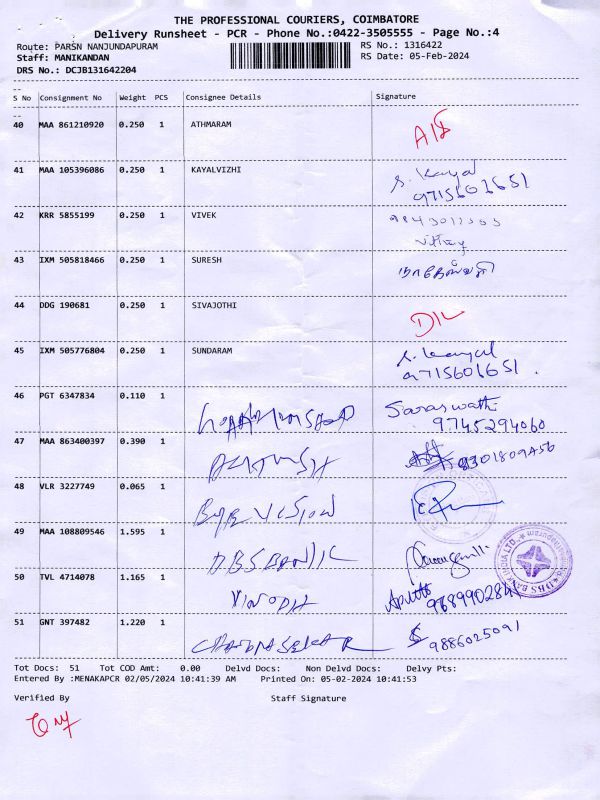 THE PROFESSIONAL COURIERS, COIMBATORE
Delivery Runsheet - PCR - Phone No.:0422-3505555 - Page No.:4
Route: PARSN NANJUNDAPURAM RS No.: 1316422
Staff: MANIKANDAN RS Date: 05-Feb-2024
DRS No.: DCJB131642204
S No Consignment No Weight PCS Consignee Details Signature
40 MAA 861210920 0.250 1 ATHMARAM
41 MAA 105396086 0.250 1 KAYALVIZHI S. Kayal
9715601651
42 KRR 5855199 0.250 1 VIVEK
43 IXM 505818466 0.250 1 SURESH
44 DDG 190681 0.250 1 SIVAJOTHI D/L
45 IXM 505776804 0.250 1 SUNDARAM S. Kayal
9715601651.
46 PGT 6347834 0.110 1 Saraswathi
9745294060
47 MAA 863400397 0.390 1
48 VLR 3227749 0.065 1 BYRE VISION
49 MAA 108809546 1.595 1 DBS BANK
DBS BANK INDIA LTD.
50 TVL 4714078 1.165 1 VINODH
51 GNT 397482 1.220 1 CHANDRASEKAR 9886025091
Tot Docs: 51 Tot COD Amt: 0.00 Delvd Docs: Non Delvd Docs: Delvy Pts:
Entered By :MENAKAPCR 02/05/2024 10:41:39 AM Printed On: 05-02-2024 10:41:53
Verified By Staff Signature